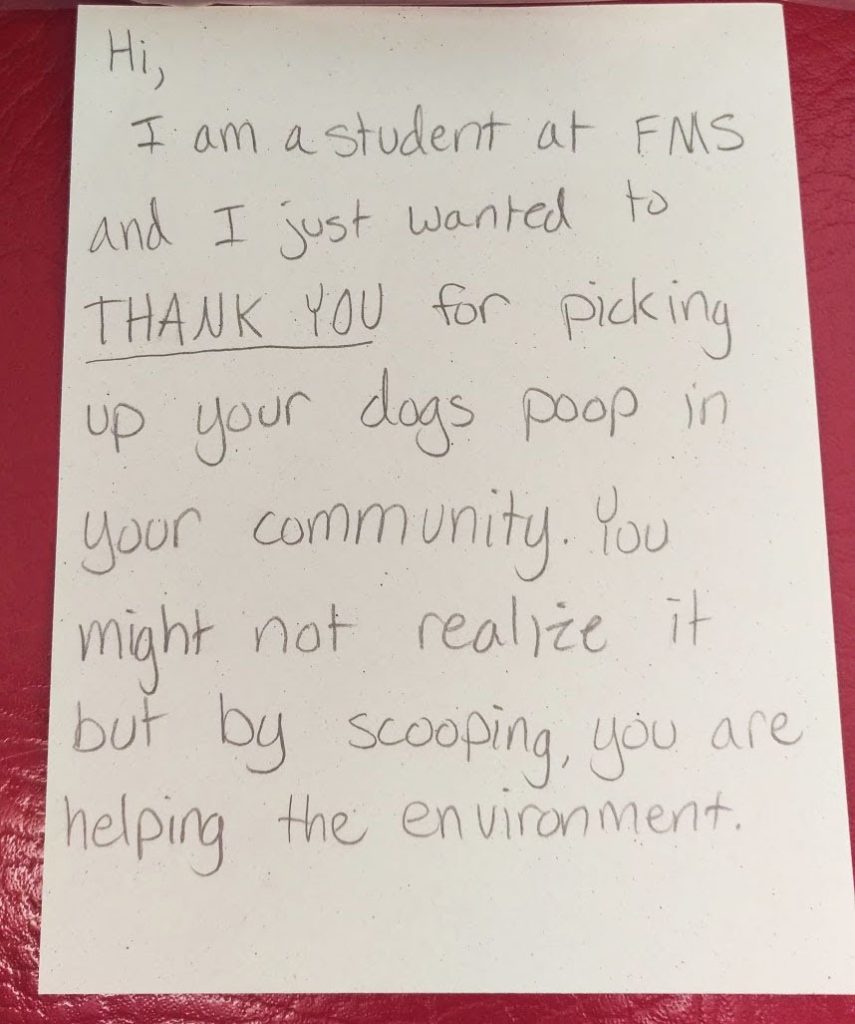 Hi,
I am a student at FMS
and I just wanted to
THANK YOU for picking
up your dogs poop in
your community. You
might not realize it
but by scooping, you are
helping the environment.